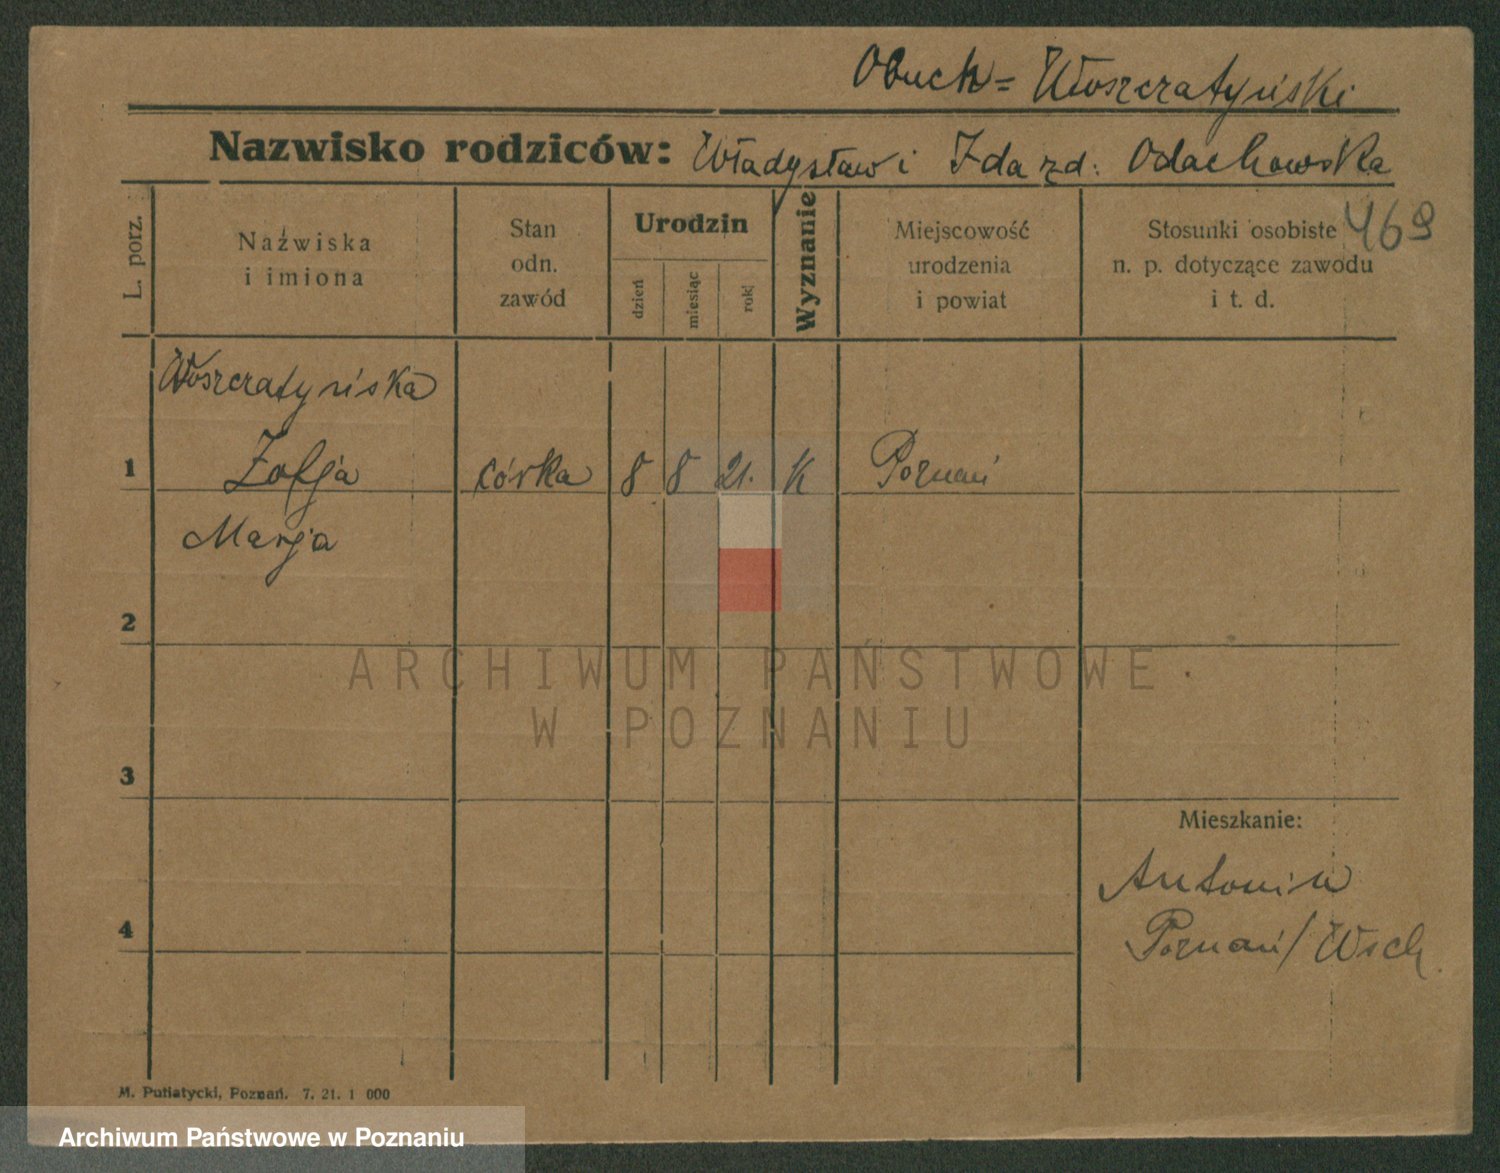 Obuch= Woszczatyński
Nazwisko rodziców: Władysław i Ida zd. Odachowska
469
L. porz.
Nazwiska
i imiona
Stan
odn.
zawód
Urodzin
dzień
miesiąc
rok
Wyznanie
Miejscowość
urodzenia
i powiat
Stosunki osobiste
n. p. dotyczące zawodu
i t. d.
Woszczatyńska
1 Zofja córka 8 8 21. k Poznań
Marja
2
ARCHIWUM PAŃSTWOWE
W POZNANIU
3
Mieszkanie:
Antonin
4
Poznań/Wsch.
M. Putiatycki, Poznań. 7. 21. 1 000
Archiwum Państwowe w Poznaniu